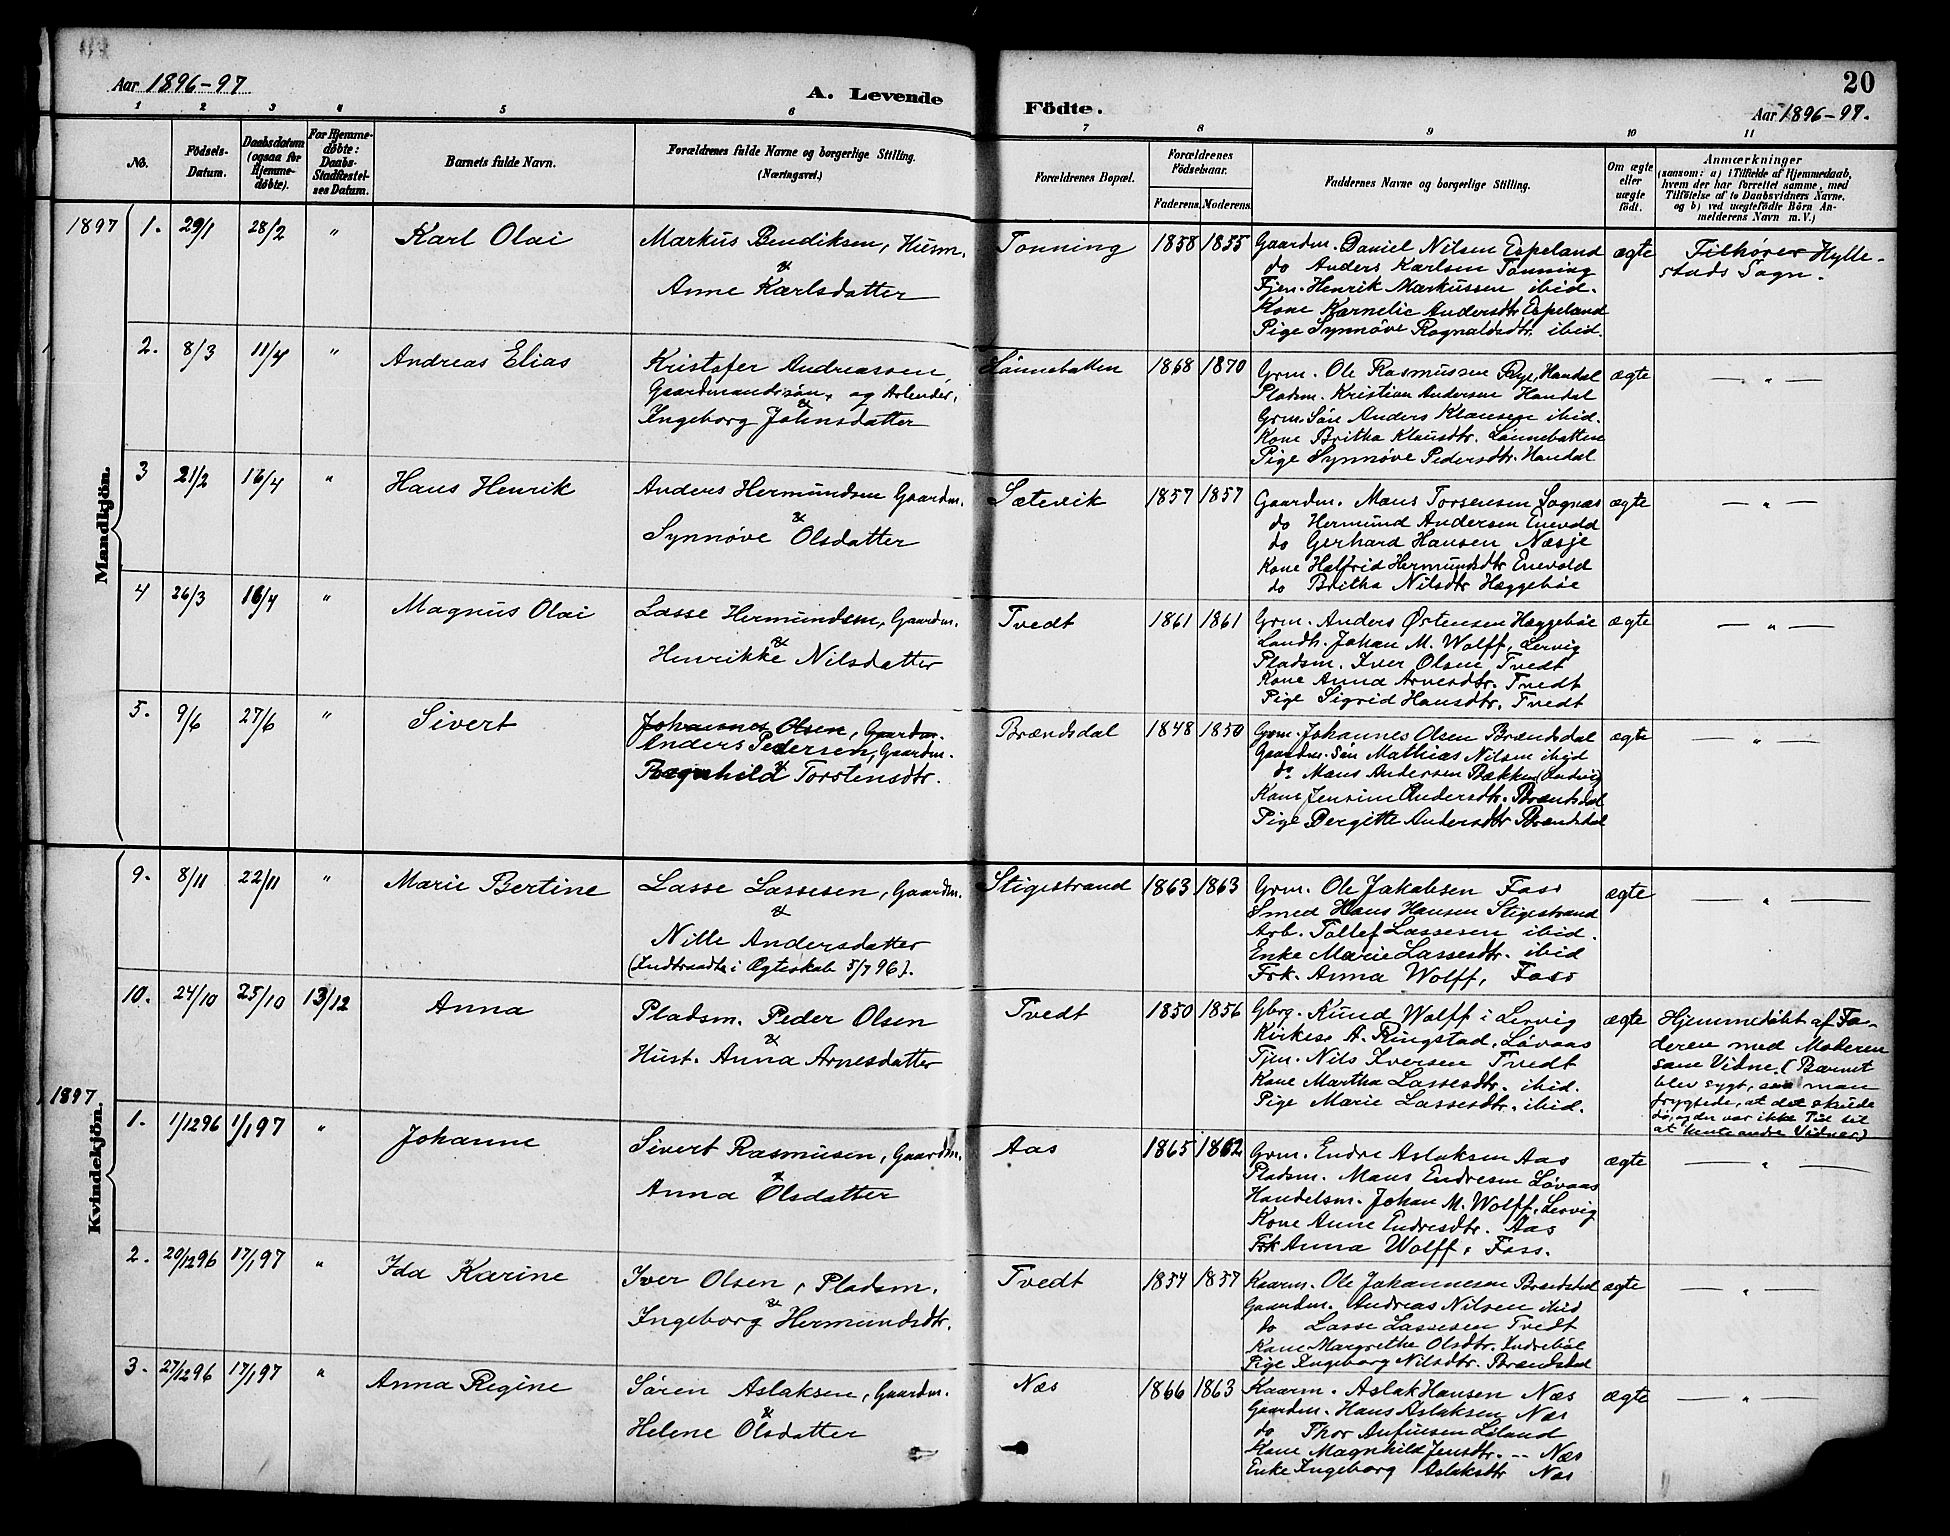 Aar 1896-97
A. Levende
Födte.
20
Aar 1896-97.
1 2 3 4 5 6 7 8 9 10 11
No.
Födsels-
Datum.
Daabsdatum
(ogsaa for
Hjemme-
døbte).
For Hjemme-
døbte:
Daabs-
Stadfæstel-
ses Datum.
Barnets fulde Navn.
Forældrenes fulde Navne og borgerlige Stilling.
(Næringsvei.)
Forældrenes Bopæl.
Forældrenes
Födselsaar.
Faderens. Moderens.
Faddernes Navne og borgerlige Stilling.
Om ægte
eller
uægte
født.
Anmærkninger
(saasom: a) i Tilfælde af Hjemmedaab,
hvem der har forrettet samme, med
Tilföielse af to Daabsvidners Navne.
og b) ved uægtefödte Börn An-
melderens Navn m. V.)
Mandkjön.
1897 1. 29/1 28/2 " Karl Olai
Markus Bendiksen, Husm.
&
Anne Karlsdatter
Tonning 1858 1855
Gaardm. Daniel Nilsen Espeland
do Anders Karlsen Tonning
Tjen. Henrik Markussen ibid.
Kone Karnelie Andersdtr Espeland
Pige Synnøve Rognaldsdtr. ibid.
ægte
Tilhører Hylle-
stads Sogn.
2. 8/3 11/4 " Andreas Elias
Kristofer Andreassen,
Gaardmandssøn, og Arbeider,
&
Ingeborg Johnsdatter
Lønnebatten 1868 1870
Grm. Ole Rasmussen Rye, Handal
Pladsm. Kristian Andersen Handal
Grm. Søn Anders Klausen ibid.
Kone Britha Klausdtr. Lønnebatten
Pige Synnøve Pedersdtr. Handal
ægte
— " —
3 21/2 16/4 " Hans Henrik
Anders Hermundsen Gaardm.
&
Synnøve Olsdatter
Sætevik 1857 1857
Gaardm. Mans Torsensen Sognæs
do Hermund Andersen Enevold
do Gerhard Hansen Næsje
Kone Halfrid Hermundsdtr Enevold
do Britha Nilsdtr Hæggebøe
ægte
— " —
4 26/3 16/4 " Magnus Olai
Lasse Hermundsen, Gaardm.
&
Henrikke Nilsdatter
Tvedt 1861 1861
Grm. Anders Østensen Hæggebøe
Landh. Johan M. Wolff, Lervig
Pladsm. Iver Olsen Tvedt
Kone Anna Arnesdtr. Tvedt
Pige Sigrid Hansdtr. Tvedt
ægte
— " —
5. 9/6 27/6 " Sivert
Johannes Olsen, Gaardm.
Anders Pedersen, Gaardm.
&
Ragnhild Torstensdtr.
Brændsdal 1848 1850
Grm. Johannes Olsen Brændsdal
Gaardm. Søn Mathias Nilsen ibid
do Mans Andersen Bækken
Kone Jensine Andersdtr. Brændsdal
Pige Bergitte Andersdtr Brændsdal
ægte
— " —
Kvindekjön.
9. 8/11 22/11 " Marie Bertine
Lasse Lassesen, Gaardm.
&
Nille Andersdatter
(Indtraadte i Ægteskab 5/7 96).
Stigestrand 1863 1863
Grm. Ole Jakobsen Fass
Smed Hans Hansen Stigestrand
Arb. Tollef Lassesen ibid.
Enke Marie Lassesdtr. ibid
Frk. Anna Wolff, Fass
ægte
— " —
10. 24/10 25/10 13/12 Anna
Pladsm. Peder Olsen
&
Hust. Anna Arnesdatter
Tvedt 1850 1856
Gbrg. Knud Wolff i Lervig
Kirkes. A. Ringstad, Løvaas
Tjen. Nils Iversen Tvedt
Kone Martha Lassesdtr. ibid.
Pige Marie Lassesdtr. ibid.
ægte
Hjemmedøbt af Fa-
deren med Moderen
som Vidne. (Barnet
blev sygt, saa man
frygtede, at det skulde
dø, og der var ikke Tid til
at hente andre Vidner)
1897
1. 1/12 96 1/1 97 " Johanne
Sivert Rasmusen, Gaardm.
&
Anna Olsdatter
Aas 1865 1862
Grm. Endre Aslaksen Aas
Pladsm. Mans Endresen Løvaas
Handelsm. Johan M. Wolff, Lervig
Kone Anne Endresdtr. Aas
Frk Anna Wolff, Fass.
ægte
— " —
2. 20/12 96 17/1 97 " Ida Karine
Iver Olsen, Pladsm.
&
Ingeborg Hermundsdtr.
Tvedt 1854 1857
Kaarm. Ole Johannesen Brændsdal
Gaardm. Andreas Nilsen ibid
do Lasse Lassesen Tvedt
Kone Margrethe Olsdtr. Indrebøe
Pige Ingeborg Nilsdtr. Brændsdal
ægte
— " —
3. 27/12 96 17/1 97 " Anna Regine
Søren Aslaksen, Gaardm.
&
Helene Olsdatter
Næs 1866 1863
Kaarm. Aslak Hansen Næs
Gaardm. Hans Aslaksen Næs
do Thor Anfinsen Leland
Kone Magnhild Jensdtr. -- Næs
Enke Ingeborg Aslaksdtr Næs
ægte
— " —